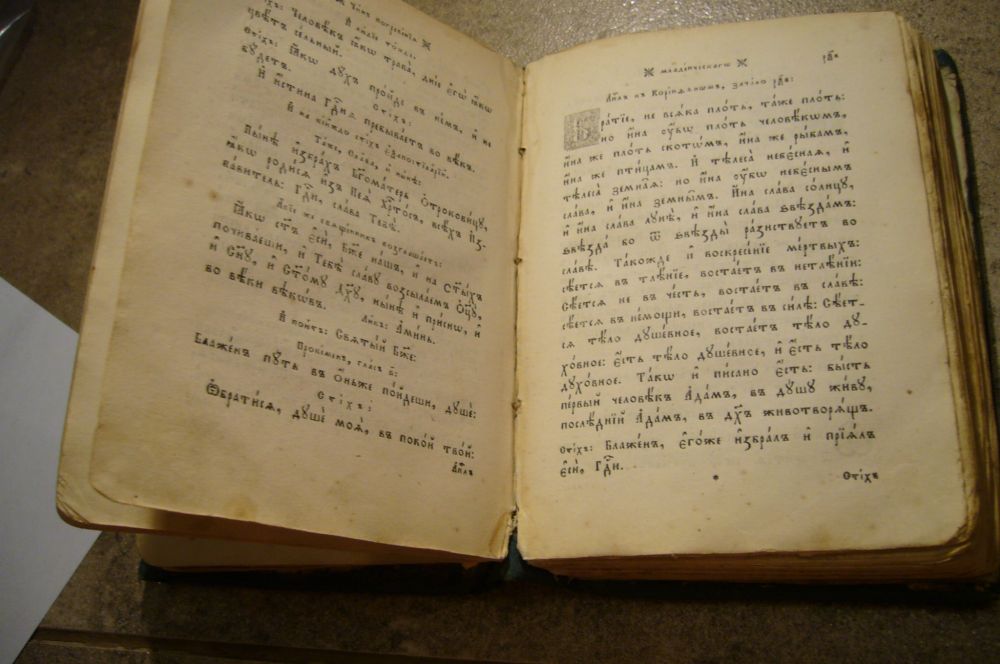 чинъ погребенїѧ ※
И҆ а҆бїе тѵ́пла.
Стїхъ: Человѣ́къ ꙗ҆́кѡ трава̀, дні́е є҆гѡ̀ ꙗ҆́кѡ
цвѣ́тъ се́льный.
Стїхъ: Ꙗ҆́кѡ дꙋ́хъ про́йде въ не́мъ, и҆ не
бꙋ́детъ.
Стїхъ:
И҆ и҆́стина гдⷭ҇нѧ пребыва́етъ во вѣ́къ.
Та́же, Сла́ва, и҆ ны́нѣ:
Ны́нѣ и҆збра́хъ Бг҃ома́терь Ѻ҆трокови́цꙋ,
ꙗ҆́кѡ роди́сѧ и҆з̾ Неѧ̀ Хрⷭ҇то́съ, всѣ́хъ И҆з-
ба́витель: Гдⷭ҇и, сла́ва Тебѣ̀.
А҆́бїе же свѧще́нникъ возглаша́етъ:
Ꙗ҆́кѡ ст҃ъ є҆сѝ, Бж҃е на́шъ, и҆ на ст҃ы́хъ
почива́еши, и҆ Тебѣ̀ сла́вꙋ возсыла́емъ Ѻ҆ц҃ꙋ̀,
и҆ Сн҃ꙋ, и҆ Ст҃о́мꙋ Дх҃ꙋ, ны́нѣ и҆ при́снѡ, и҆
во вѣ́ки вѣкѡ́въ.
Ли́къ: А҆ми́нь.
И҆ пою́тъ: Свѧты́й Бж҃е:
Проки́менъ, гла́съ ѕ҃:
Блаже́нъ пꙋ́ть въ ѻ҆́ньже по́йдеши, дꙋшѐ:
Стїхъ:
Ѡ҆брати́сѧ, дꙋшѐ моѧ̀, въ поко́й тво́й:
А҆пⷭ҇лъ
※ младе́нческагѡ ※
А҆пⷭ҇лъ къ Корі́нѳѧнѡмъ, зача́ло рѯ҃в:
Бра́тїе, не всѧ́ка пло́ть, та́же пло́ть:
но и҆́на ᲂу҆́бѡ пло́ть человѣ́кѡмъ,
и҆́на же пло́ть скотѡ́мъ, и҆́на же ры́бамъ,
и҆́на же пти́цамъ. И҆ тѣлеса̀ небє́снаѧ, и҆
тѣлеса̀ зємна́ѧ: но и҆́на ᲂу҆́бѡ небє́снымъ
сла́ва, и҆ и҆́на земны̑мъ. И҆́на сла́ва со́лнцꙋ,
и҆ и҆́на сла́ва лꙋнѣ̀, и҆ и҆́на сла́ва ѕвѣзда́мъ:
ѕвѣзда́ бо ѿ ѕвѣзды̀ ра́знствꙋетъ во
сла́вѣ. Та́кожде и҆ воскресе́нїе ме́ртвыхъ:
сѣ́етсѧ въ тлѣ́нїе, востае́тъ въ нетлѣ́нїи:
Сѣ́етсѧ не въ че́сть, востае́тъ въ сла́вѣ:
сѣ́етсѧ въ не́мощи, востае́тъ въ си́лѣ: Сѣ́ет-
сѧ тѣ́ло дꙋше́вное, востае́тъ тѣ́ло дꙋ-
хо́вное: є҆́сть тѣ́ло дꙋше́вное, и҆ є҆́сть тѣ́ло
дꙋхо́вное. Та́кѡ и҆ пи́сано є҆́сть: бы́сть
пе́рвый человѣ́къ А҆да́мъ, въ дꙋ́шꙋ жи́вꙋ,
послѣ́днїй А҆да́мъ, въ дх҃ъ животворѧ́щъ.
Стїхъ: Блаже́нъ, є҆го́же и҆збра́лъ и҆ прїѧ́лъ
є҆сѝ, Гдⷭ҇и.
Стїхъ